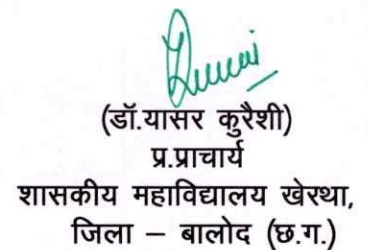 (डॉ.यासर कुरैशी)
प्र.प्राचार्य
शासकीय महाविद्यालय खेरथा,
जिला – बालोद (छ.ग.)